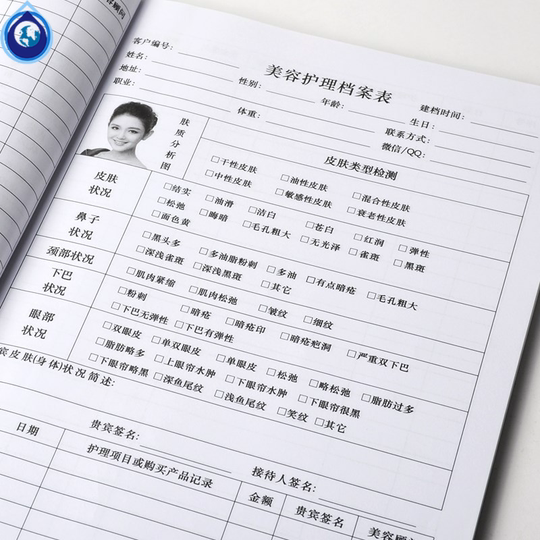 容顾问
客户编号:
美容护理档案表
建档时间:
姓名:
性别:
年龄:
生日:
地址:
联系方式:
职业:
体重:
微信/QQ:
肤质分析图
皮肤类型检测
□干性皮肤 □油性皮肤 □混合性皮肤
□中性皮肤 □敏感性皮肤 □衰老性皮肤
皮肤状况
□结实 □油滑 □洁白 □苍白 □红润 □弹性
□松弛 □晦暗 □毛孔粗大 □无光泽 □雀斑 □黑斑
□面色黄
鼻子状况
□黑头多 □多油脂粉刺 □多油 □有点暗疮 □毛孔粗大
□深浅雀斑 □深浅黑斑 □其它
颈部状况
□肌肉紧缩 □肌肉松弛 □皱纹 □细纹
下巴状况
□粉刺 □暗疮 □暗疮印 □暗疮疤洞 □严重双下巴
□下巴无弹性 □下巴有弹性
眼部状况
□双眼皮 □单双眼皮 □单眼皮 □松弛 □略松弛 □脂肪过多
□脂肪略多 □上眼帘水肿 □下眼帘水肿 □下眼帘很黑
□下眼帘略黑 □深鱼尾纹 □浅鱼尾纹 □笑纹 □其它
宾皮肤(身体)状况简述:
贵宾签名:
接待人签名:
日期
护理项目或购买产品记录
金额
贵宾签名
美容顾